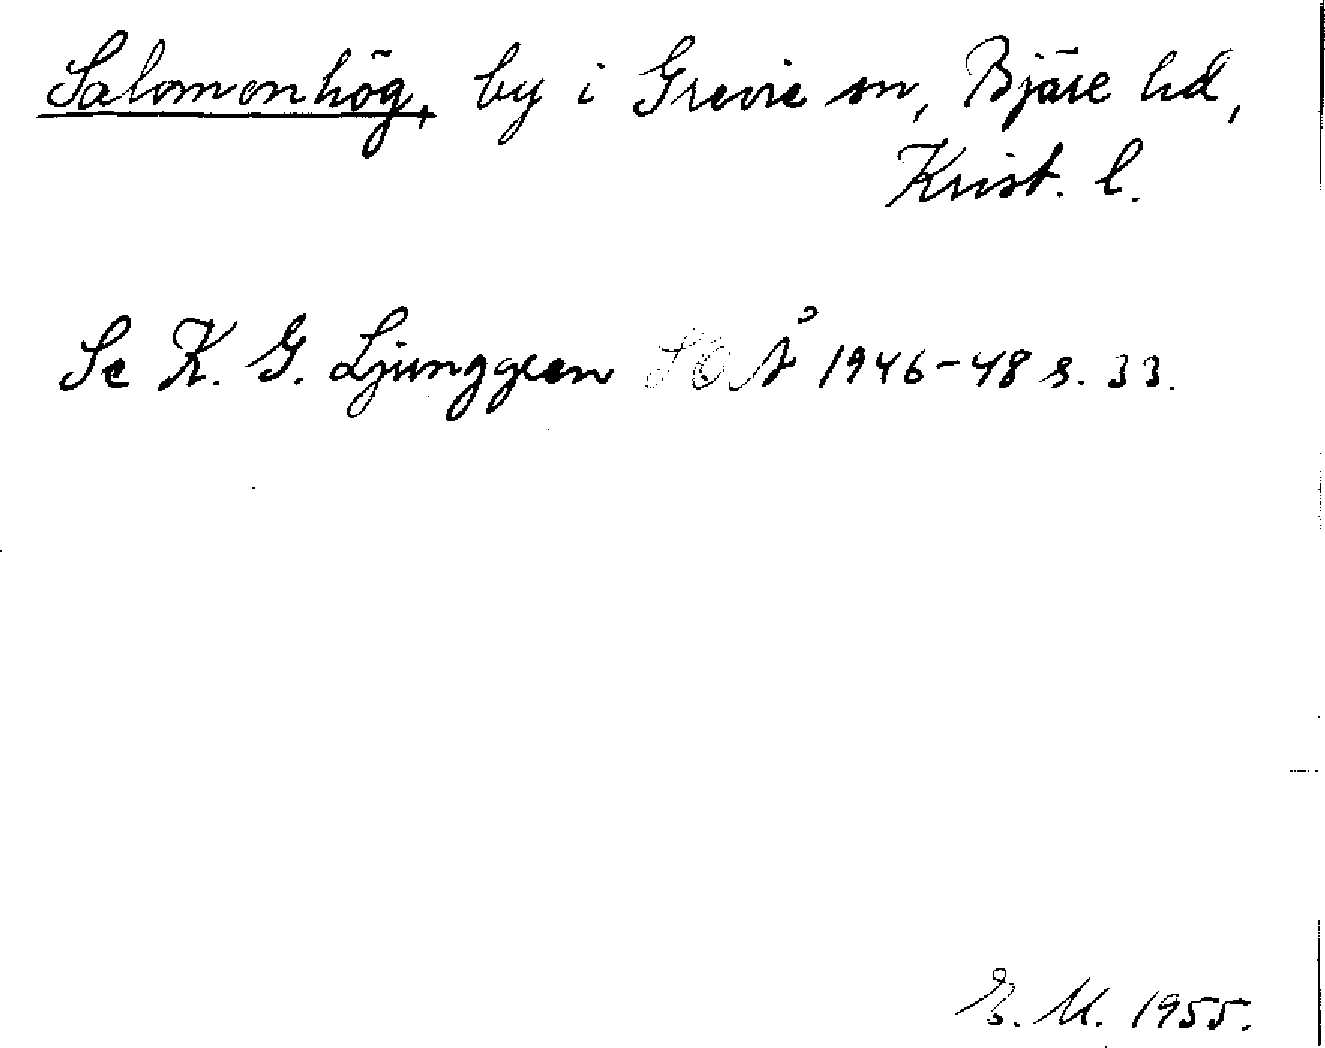 Salomonhög, by i Grevie sn, Bjäre hd,
Krist. l.
Se K. G. Ljunggren SOÅ 1946-48 s. 33.
E. M. 1955.